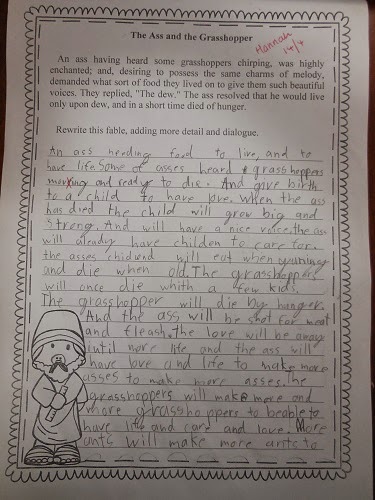 The Ass and the Grasshopper
Hannah
14/4
An ass having heard some grasshoppers chirping, was highly
enchanted; and, desiring to possess the same charms of melody,
demanded what sort of food they lived on to give them such beautiful
voices. They replied, "The dew." The ass resolved that he would live
only upon dew, and in a short time died of hunger.
Rewrite this fable, adding more detail and dialogue.
An ass needing food to live, and to
have life. Some of asses heard grassheppers
and ready to die. And give birth
to a child to have love. when the ass
has died the child will grow big and
Strong. And will have a nice voice. the ass
will aleady have childen to care for.
the asses will eat when
and die when old. The grassheppers
will once die whith a few kids.
The grasshopper will die by hunger.
And the ass will be shot for meat
and fleash. the love will be away
until more life and the ass will
have love and life to make more
asses to make more asses. The
grasshoppers will make more and
more grasshoppers to beable to
have life and care and love. More
ants will make more ants to